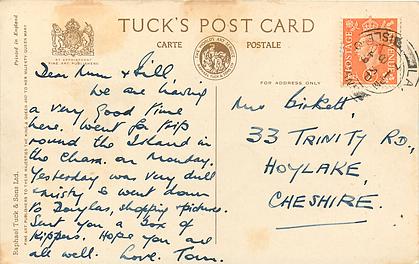 TUCK'S POST CARD
CARTE POSTALE
BY APPOINTMENT
FOR ADDRESS ONLY
Printed in England
Raphael Tuck & Sons Ltd.
FINE ART PUBLISHERS TO THEIR MAJESTIES THE KING & QUEEN AND TO HER MAJESTY QUEEN MARY
POSTAGE
Dear Mum & Bill
We are having
a very good time
here. Went for trip
round the Island in
the Chara. on Monday.
Yesterday was very dull
& misty & went down
to Douglas, shopping & pictures.
Sent you a box of
Kippers. Hope you are
all well. Love. Tom.
Mrs Birkett,
33 TRINITY RD,
HOYLAKE,
CHESHIRE.